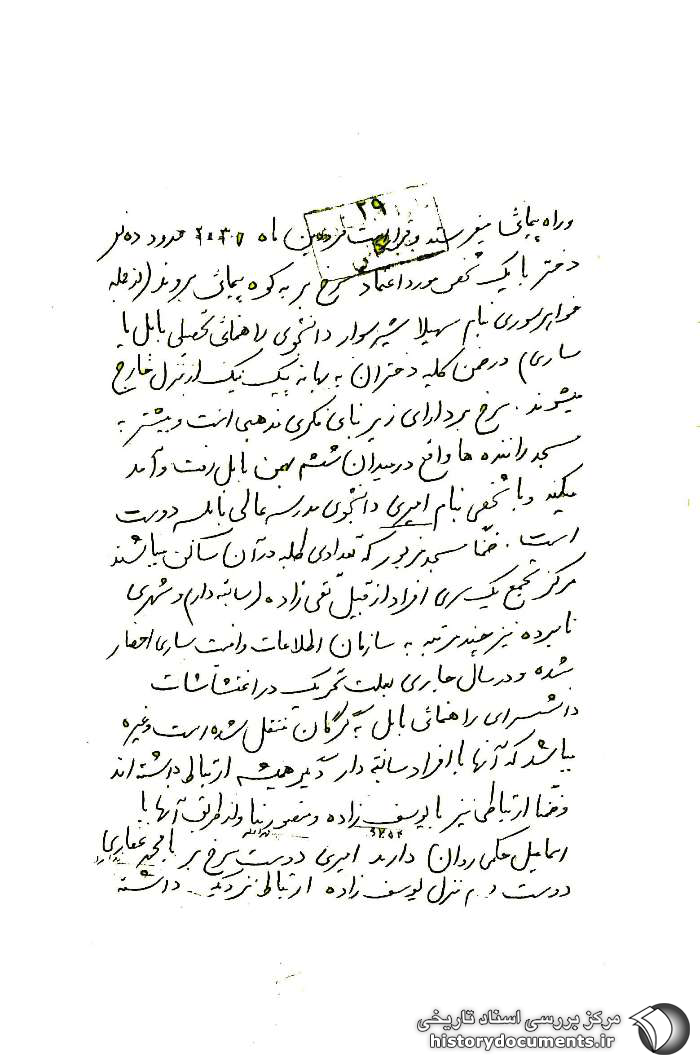 ۲۹
وراه پیمائی میفرستد و قرار است فروردین ماه ۲۵۳۷ حدود ده نفر
دختر با یک شخص مورد اعتماد سرخ بر به کوه پیمائی بروند (از جمله
خواهر سوری بنام سهیلا شیرسوار دانشجوی راهنمائی تحصیلی بابل یا
ساری) در ضمن کلیه دختران به بهانه پیک نیک از منزل خارج
میشوند. سرخ بر دارای زیر بنای فکری مذهبی است و بیشتر به
مسجد راننده ها واقع در میدان ششم بهمن بابل رفت و آمد
میکند و با شخصی بنام امیری دانشجوی مدرسه عالی بابلسر دوست
است. ضمناً مسجد مزبور که تعدادی طلبه در آن ساکن میباشند
مرکز تجمع یک سری افراد از قبیل تقی زاده (سابقه دار) و شهری
نامبرده نیز چند مرتبه به سازمان اطلاعات و امنیت ساری احضار
شده و در سال جاری بعلت تحریک در اغتشاشات
دانشسرای راهنمائی بابل به گرگان منتقل شده است وغیره
میباشد که آنها با افراد سابقه دار دیگر همیشه ارتباط داشته اند
و ضمناً ارتباطی نیز با یوسف زاده و منصور نیا و از طریق آنها با
اسماعیل حکمی روان دارند امیری دوست سرخ بر با مجید غفاری
دوست و منزل یوسف زاده ارتباط نزدیکی داشته
مرکز بررسی اسناد تاریخی
historydocuments.ir